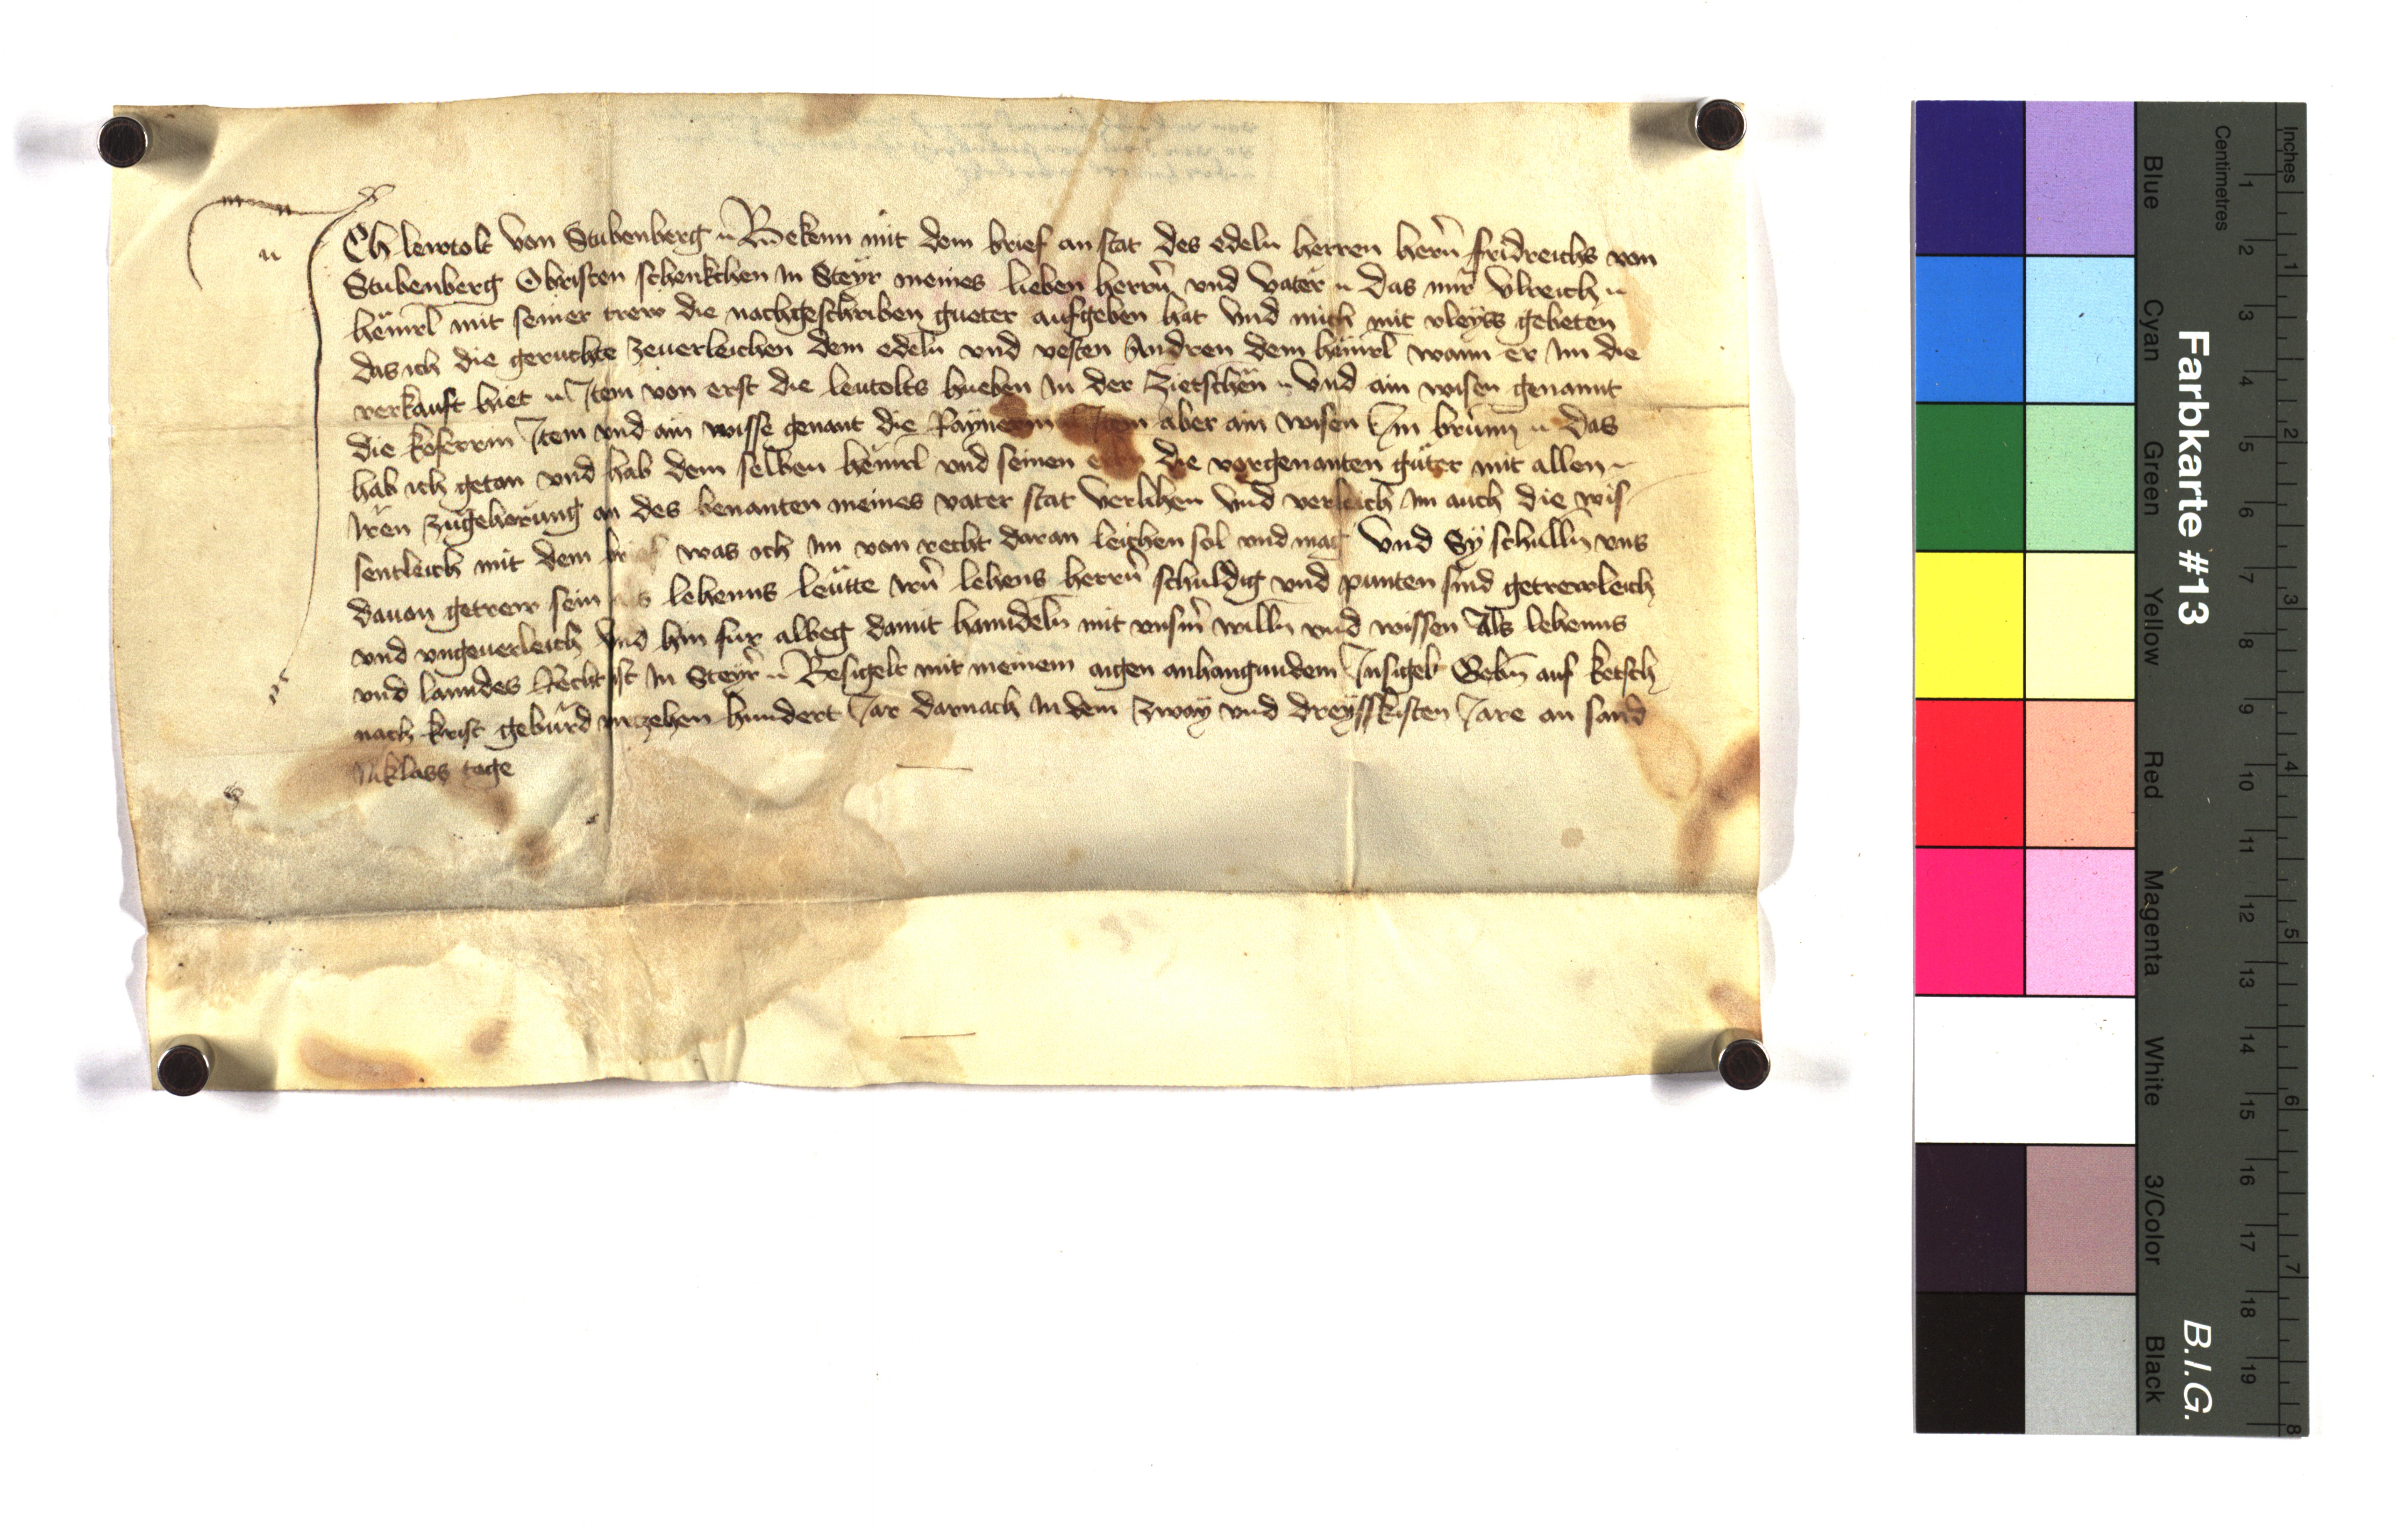 Ich Lewtolt von Stubenberg Bekenn mit dem brief an stat des edeln herren hern fridreichs von
Stubenberg Obristen schenkchen in Steyr meines lieben herrn und vater das mir Ulreich
heinrl mit seiner trew die nachgeschriben gueter aufgeben hat Und mich mit vleyss gebeten
das ich die geruchte zeuerleichen dem edeln und vesten Andren dem heinrl wann er im die
verkauft hiet Item von erst die leutolts hueben in der Zietschen Und ain wisen genannt
die koferrin Item und ain wisse genant die Item aber ain wisen Im brunn Das
hab ich getan und hab dem selben heinrl und seinen die vorgenanten guter mit allen
iren zugehorung an des benanten meines vater stat verlihen Und verleich im auch die wis
sentleich mit dem brief was ich im von recht daran leichen sol und mag Und Sy schulln uns
davon getrew sein als lehenns leutte irn lehens herrn schuldig und punten sind getrewleich
und ungeuerleich Und hin fur albeg damit hanndeln mit unsern willn und wissen Als lehenns
und lanndes Recht ist in Steyr Besigelt mit meinem aigen anhangundem Insigel Gebn auf ketsch
nach krist geburd virczehen hundert Jar darnach in dem zway und dreysskisten Jare an sand
Niklass tage
Farbkarte #13
B.I.G.
Blue
Cyan
Green
Yellow
Red
Magenta
White
3/Color
Black
Centimetres
1 2 3 4 5 6 7 8 9 10 11 12 13 14 15 16 17 18 19
Inches
1 2 3 4 5 6 7 8